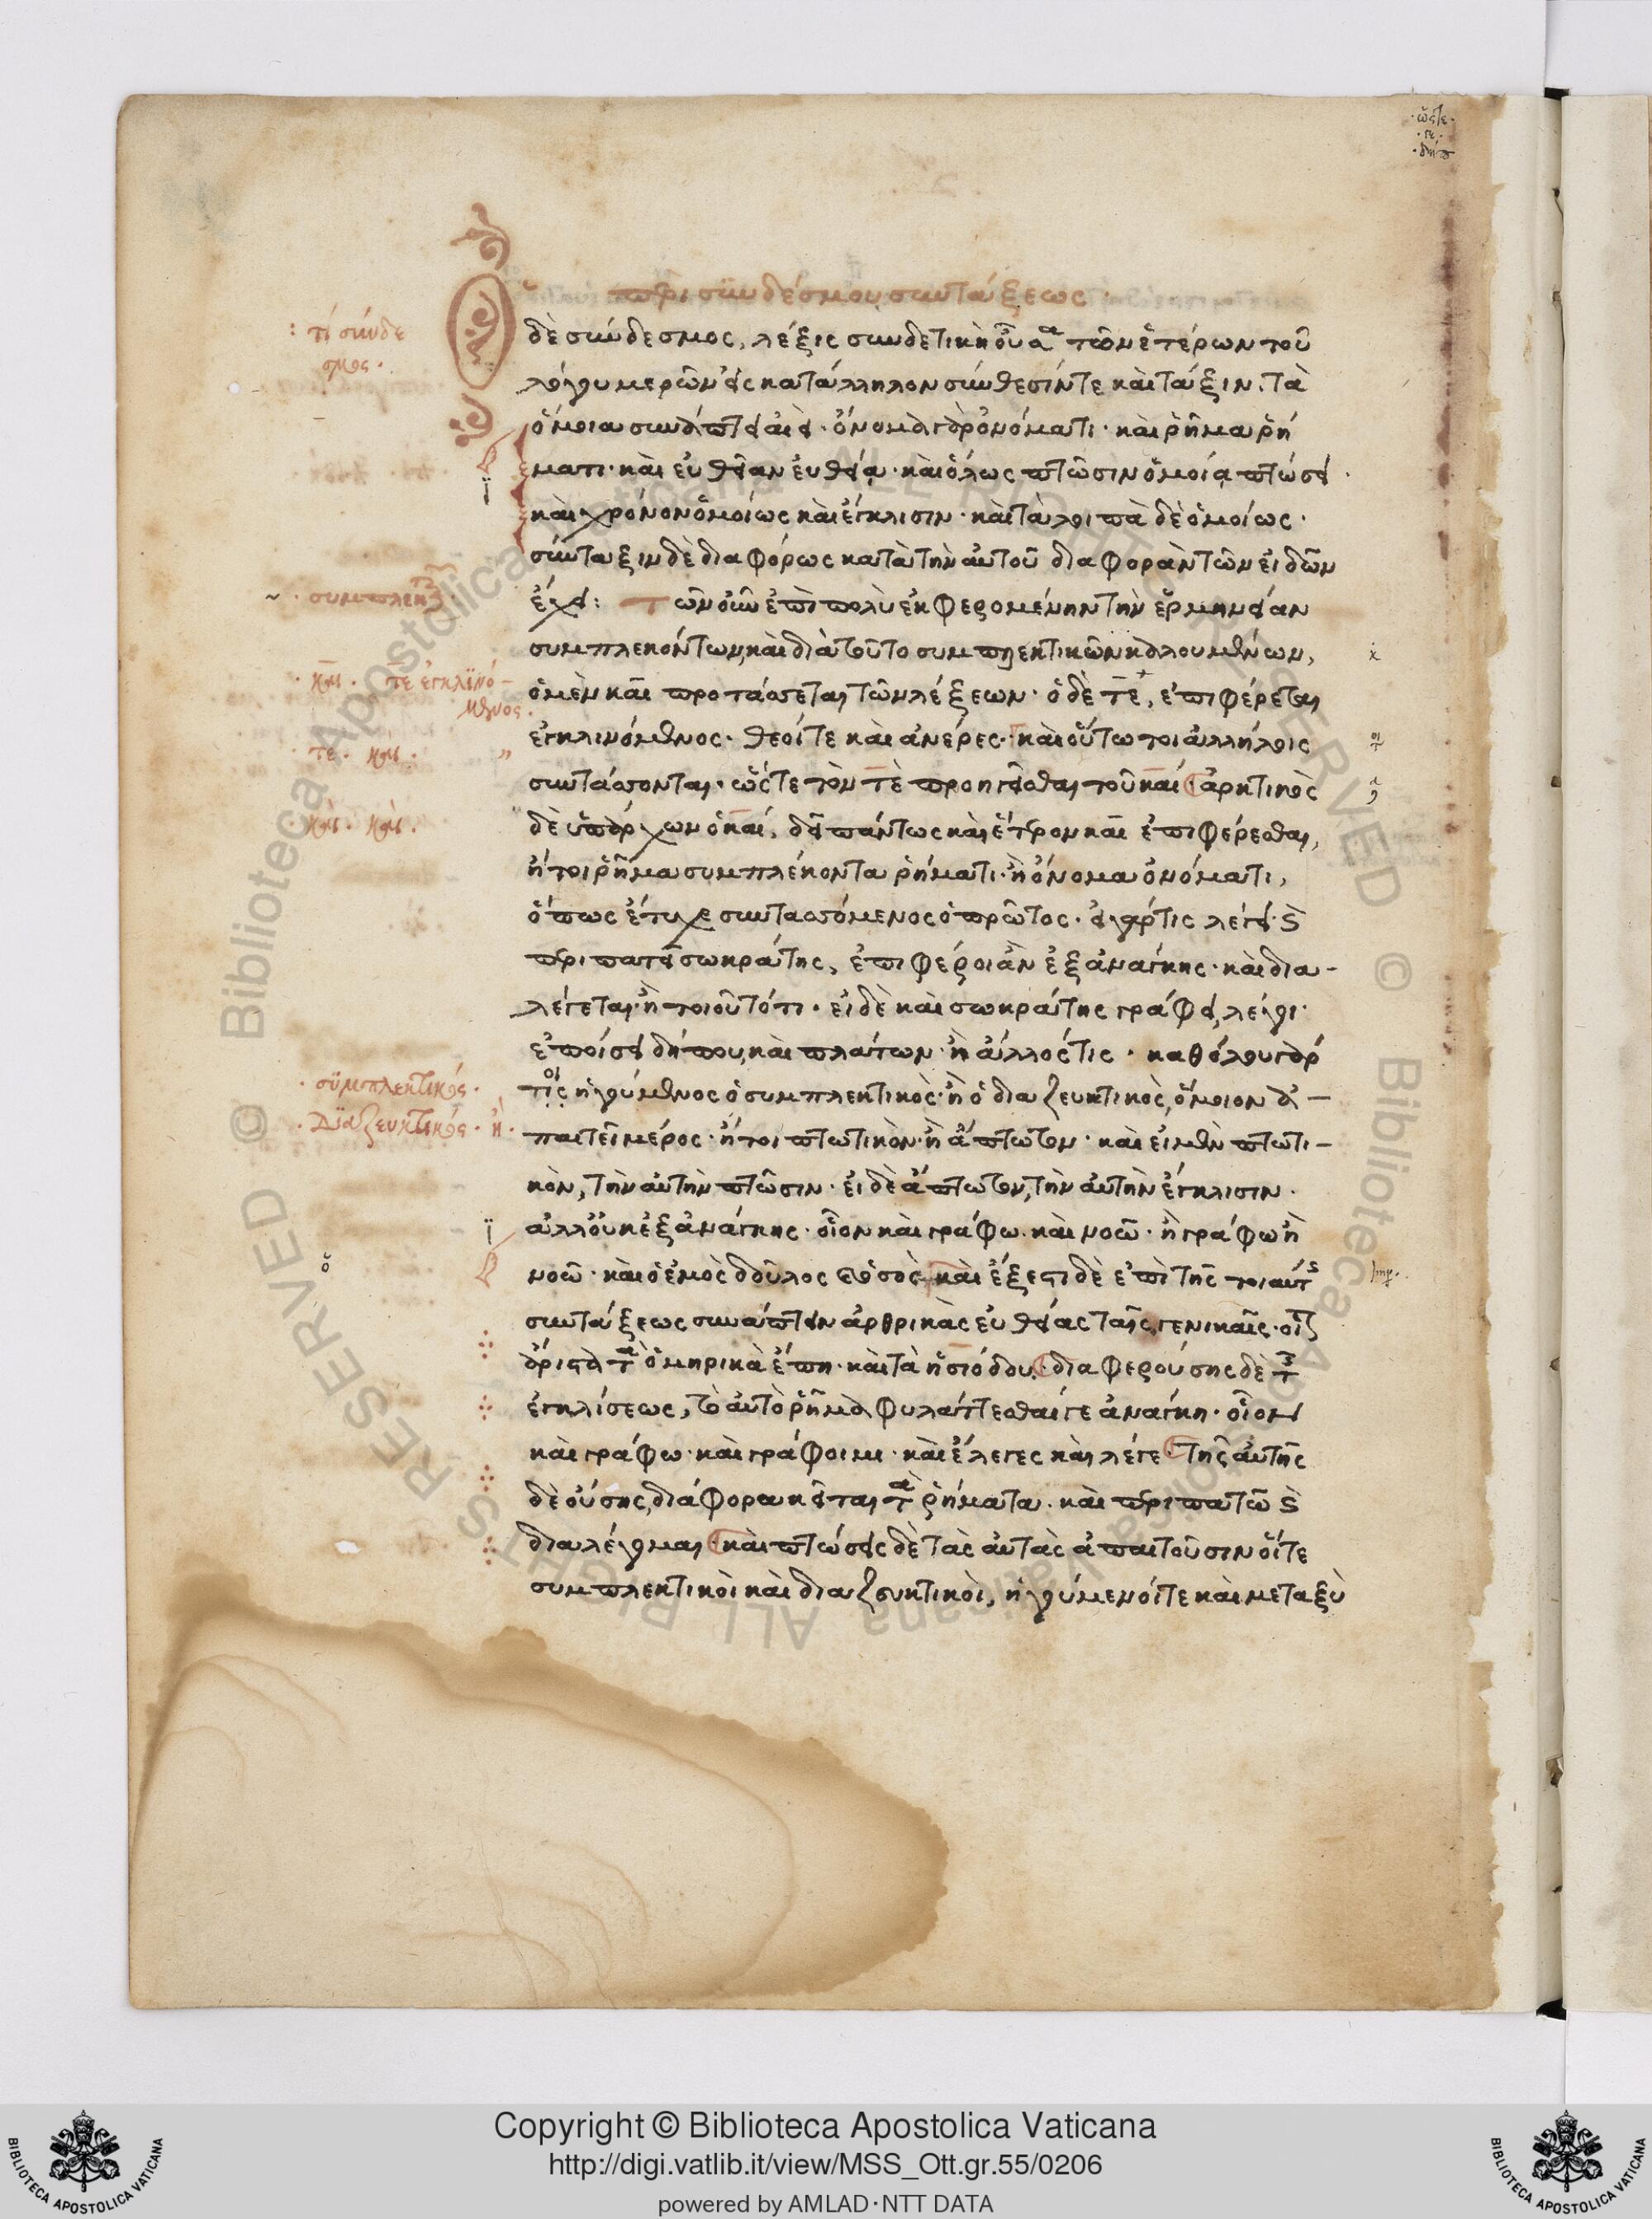 περι συνδέσμου συντάξεως
Ὁ δὲ σύνδεσμος, λέξις συνδετικὴ οὖσα τῶν ἑτέρων τοῦ
λόγου μερῶν εἰς κατάλληλον σύνθεσίν τε καὶ τάξιν. τὰ
ὅμοια συνάπτει ἀεί. ὄνομα γὰρ ὀνόματι· καὶ ῥῆμα ῥή
ματι· καὶ εὐθεῖαν εὐθείᾳ· καὶ ὅλως πτῶσιν ὁμοίᾳ πτώσει·
καὶ χρόνον ὁμοίως καὶ ἔγκλισιν· καὶ τὰ λοιπὰ δὲ ὁμοίως·
σύνταξιν δὲ διαφόρως κατὰ τὴν αὐτοῦ διαφορὰν τῶν εἰδῶν
ἔχει: Τῶν οὖν ἐπιπολὺ ἐκφερομένην τὴν ἑρμηνείαν
συμπλεκόντων, καὶ διὰ τοῦτο συμπλεκτικῶν καλουμένων,
ὁ μὲν και προτάσσεται τῶν λέξεων· ὁ δὲ τε, ἐπιφέρεται
ἐγκλινόμενος· θεοί τε καὶ ἀνέρες· καὶ οὕτω τοι ἀλλήλοις
συντάσσονται· ὥστε τὸν τὲ προηγεῖσθαι τοῦ καί· ἀρκτικὸς
δὲ ὑπάρχων ὁ καί, δεῖ πάντως καὶ ἕτερον καὶ ἐπιφέρεσθαι,
ἤτοι ῥῆμα συμπλέκοντα ῥήματι· ἢ ὄνομα ὀνόματι,
ὅπως ἔτυχε συντασσόμενος ὁ πρῶτος· εἰ γάρ τις λέγει· καὶ
περιπατεῖ σωκράτης, ἐπιφέροι ἂν ἐξανάγκης· καὶ δια-
λέγεται· ἢ τοιοῦτό τι· εἰ δὲ καὶ σωκράτης γράφει, λέγοι·
ἐποίσει δήπου, καὶ πλάτων· ἢ ἄλλός τις· καθόλου γὰρ
τίς ἡγούμενος ὁ συμπλεκτικὸς· ἢ ὁ διαζευκτικὸς, ὅμοιον ἀ-
παιτεῖ μέρος· ἤτοι πτωτικὸν· ἢ ἄπτωτον· καὶ εἰ μὲν πτωτι-
κὸν, τὴν αὐτὴν πτῶσιν· εἰ δὲ ἄπτωτον, τὴν αὐτὴν ἔγκλισιν·
ἀλλ' οὐκ ἐξανάγκης· οἷον καὶ γράφω· καὶ νοῶ· ἢ γράφω ἢ
νοῶ· καὶ ὁ ἐμὸς δοῦλος καὶ ὁ σὸς· καὶ ἔξεστι δὲ ἐπὶ τῆς τοιαύτης
συντάξεως συνάπτειν ἀρθρικὰς εὐθείας ταῖς γενικαῖς·
ἄριστα τὰ ὁμηρικὰ ἔπη· καὶ τὰ ἡσιόδου· διαφερούσης δὲ τῆς
ἐγκλίσεως, τὸ αὐτὸ ῥῆμα φυλάττεσθαί γε ἀνάγκη· οἷον
καὶ γράφω· καὶ γράφοιμι· καὶ ἔλεγες καὶ λέγε· τῆς αὐτῆς
δὲ οὔσης, διάφορα κεῖται τὰ ῥήματα· καὶ περιπατῶ καὶ
διαλέγομαι· καὶ πτώσεις δὲ τὰς αὐτὰς ἀπαιτοῦσιν οἵ τε
συμπλεκτικοὶ καὶ διαζευκτικοὶ, ἡγούμενοί τε καὶ μεταξὺ
: τί σύνδε
σμος·
· και · τὲ ἐγκλινό-
μενος.
· τε · και ·
καὶ · καὶ ·
· συμπλεκτικός ·
· Διαζευκτικός · ἢ ·
· ὥστε ·
· τε ·
Copyright © Biblioteca Apostolica Vaticana
http://digi.vatlib.it/view/MSS_Ott.gr.55/0206
powered by AMLAD·NTT DATA
BIBLIOTECA APOSTOLICA VATICANA
BIBLIOTECA APOSTOLICA VATICANA
© Biblioteca Apostolica Vaticana ALL RIGHTS RESERVED
© Biblioteca Apostolica Vaticana ALL RIGHTS RESERVED